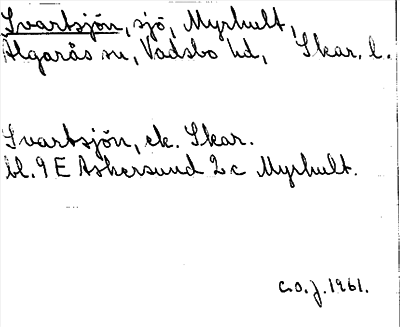 Svartsjön, sjö, Myrhult,
Älgarås sn, Vadsbo hd, Skar. l.
Svartsjön, ek. Skar.
bl. 9 E Askersund 2 c Myrhult.
C.O.J. 1961.